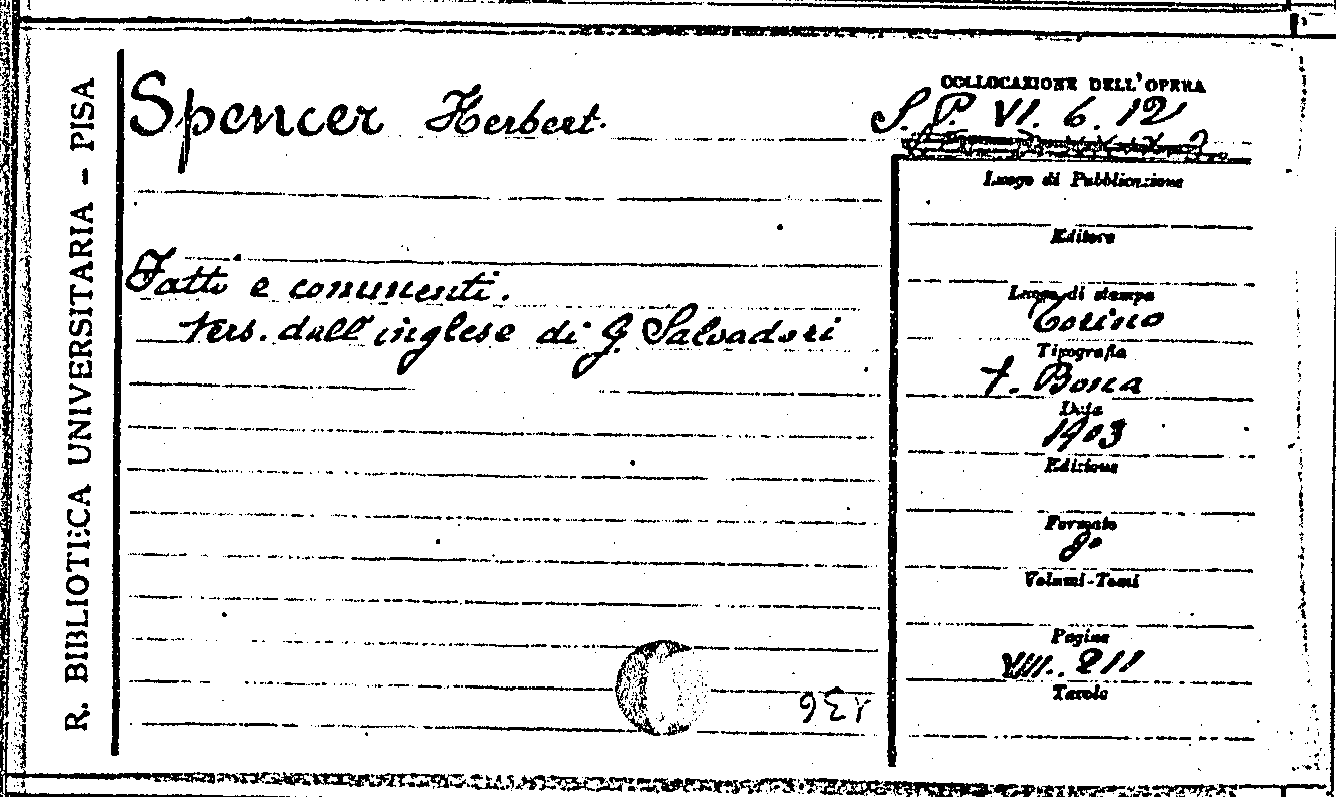 R. BIBLIOTECA UNIVERSITARIA - PISA
Spencer Herbert.
Fatti e commenti.
Vers. dall'inglese di G. Salvadori
COLLOCAZIONE DELL'OPERA
S. P. VI. 6. 12
Luogo di Pubblicazione
Editore
Luogo di stampa
Torino
Tipografia
f. Bocca
Data
1903
Edizione
Formato
8°
Volumi-Tomi
Pagine
VIII. 211
Tavole